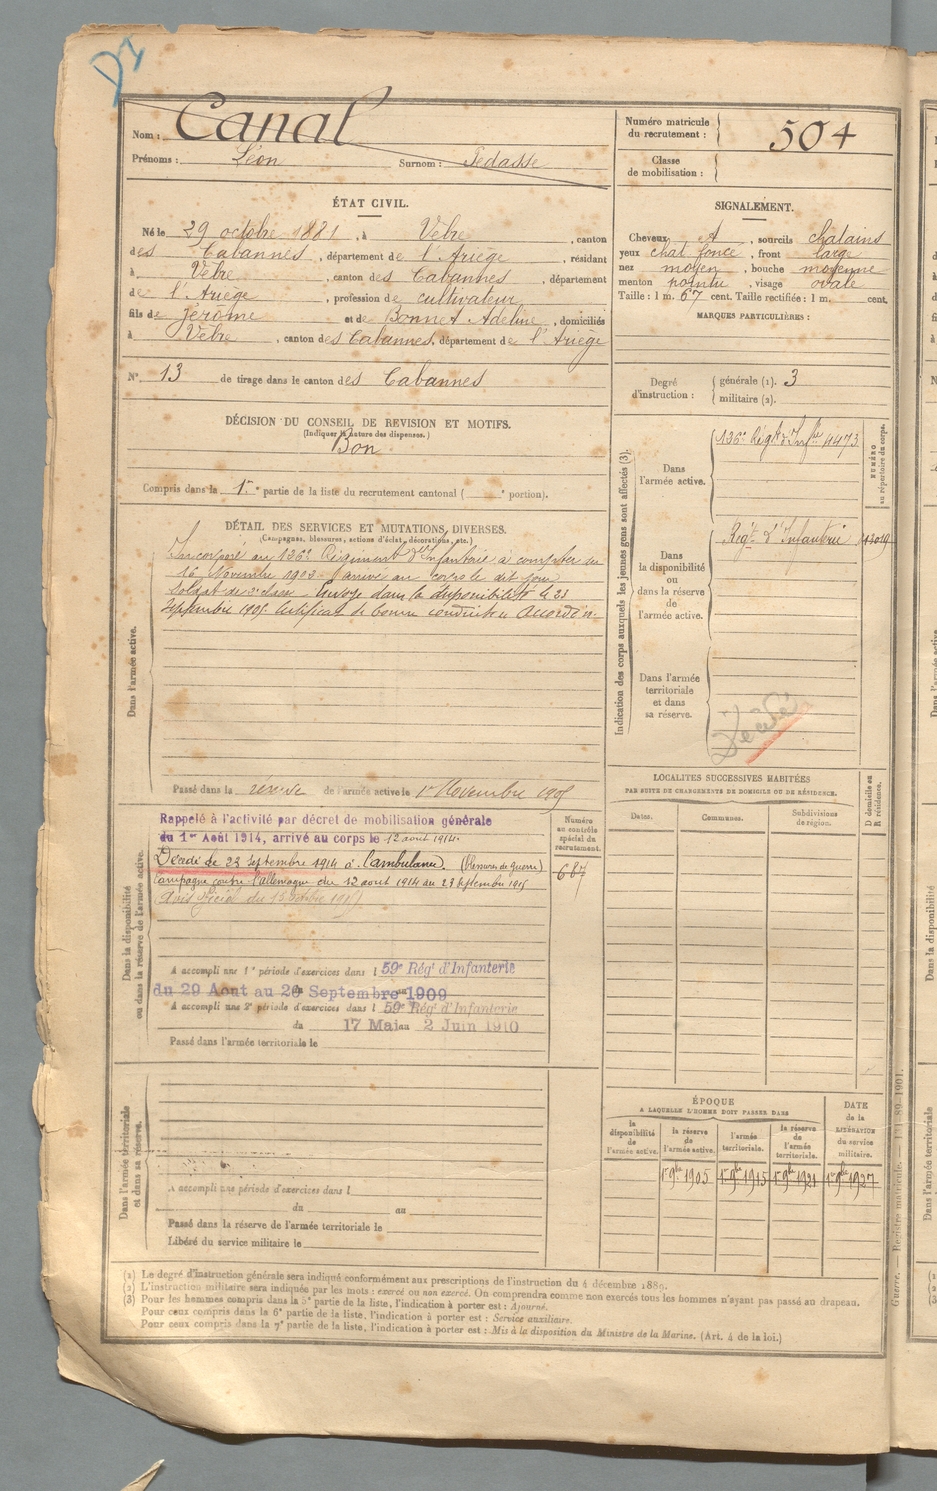 Nom : Canal
Prénoms : Léon Surnom : Pedasse
Numéro matricule du recrutement : 504
Classe de mobilisation :
ÉTAT CIVIL.
Né le 29 octobre 1881, à Vèbre, canton
des Cabannes, département de l'Ariège, résidant
à Vèbre, canton des Cabannes, département
de l'Ariège, profession de cultivateur
fils de Jérôme et de Bonnet Adeline, domiciliés
à Vèbre, canton des Cabannes, département de l'Ariège
N° 13 de tirage dans le canton des Cabannes
SIGNALEMENT.
Cheveux , sourcils chatains
yeux chat foncé, front large
nez moyen, bouche moyenne
menton pointu, visage ovale
Taille : 1 m. 67 cent. Taille rectifiée : 1 m. cent.
MARQUES PARTICULIÈRES :
Degré d'instruction : générale (1). 3
militaire (2).
DÉCISION DU CONSEIL DE REVISION ET MOTIFS.
(Indiquer la nature des dispenses.)
Bon
Compris dans la 1re partie de la liste du recrutement cantonal ( portion).
DÉTAIL DES SERVICES ET MUTATIONS DIVERSES.
(Campagnes, blessures, actions d'éclat, décorations, etc.)
Dans l'armée active.
Incorporé au 136e Régiment d'Infanterie à compter du
16 Novembre 1902 arrivé au corps le dit jour
soldat de 2e classe. Envoyé dans la disponibilité le 23
Septembre 1905. Certificat de bonne conduite "Accordé"
Passé dans la réserve de l'armée active le 1er Novembre 1905
Indication des corps auxquels les jeunes gens sont affectés (3).
Dans l'armée active.
136e Régt d'Infrie 4473
NUMÉRO au répertoire du corps.
Dans la disponibilité ou dans la réserve de l'armée active.
Régt d'Infanterie
Dans l'armée territoriale et dans sa réserve.
Décédé
Dans la disponibilité ou dans la réserve de l'armée active.
Rappelé à l'activité par décret de mobilisation générale
du 1er Août 1914, arrivé au corps le 12 août 1914.
Décédé le 23 Septembre 1914 à l'ambulance (blessures de guerre)
Campagne contre l'Allemagne du 12 aout 1914 au 23 Septembre 1914
Avis officiel du 15 octobre
Numéro au contrôle spécial du recrutement.
687
A accompli une 1e période d'exercices dans l 59e Régt d'Infanterie
du 29 Aout au 20 Septembre 1909
A accompli une 2e période d'exercices dans l 59e Régt d'Infanterie
du 17 Mai au 2 Juin 1910
Passé dans l'armée territoriale le
LOCALITÉS SUCCESSIVES HABITÉES
PAR SUITE DE CHANGEMENTS DE DOMICILE OU DE RÉSIDENCE.
Dates. Communes. Subdivisions de région. D domicile ou R résidence.
Dans l'armée territoriale et dans sa réserve.
A accompli une période d'exercices dans l
du au
Passé dans la réserve de l'armée territoriale le
Libéré du service militaire le
ÉPOQUE
A LAQUELLE L'HOMME DOIT PASSER DANS
la disponibilité de l'armée active.
la réserve de l'armée active.
l'armée territoriale.
la réserve de l'armée territoriale.
DATE de la LIBÉRATION du service militaire.
1er 9bre 1905 1er 9bre 1915 1er 9bre 1921 1er 9bre 1927
(1) Le degré d'instruction générale sera indiqué conformément aux prescriptions de l'instruction du 4 décembre 1889.
(2) L'instruction militaire sera indiquée par les mots : exercé ou non exercé. On comprendra comme non exercés tous les hommes n'ayant pas passé au drapeau.
(3) Pour les hommes compris dans la 5e partie de la liste, l'indication à porter est : Ajourné.
Pour ceux compris dans la 6e partie de la liste, l'indication à porter est : Service auxiliaire.
Pour ceux compris dans la 7e partie de la liste, l'indication à porter est : Mis à la disposition du Ministre de la Marine. (Art. 4 de la loi.)
Guerre. — Registre matricule.